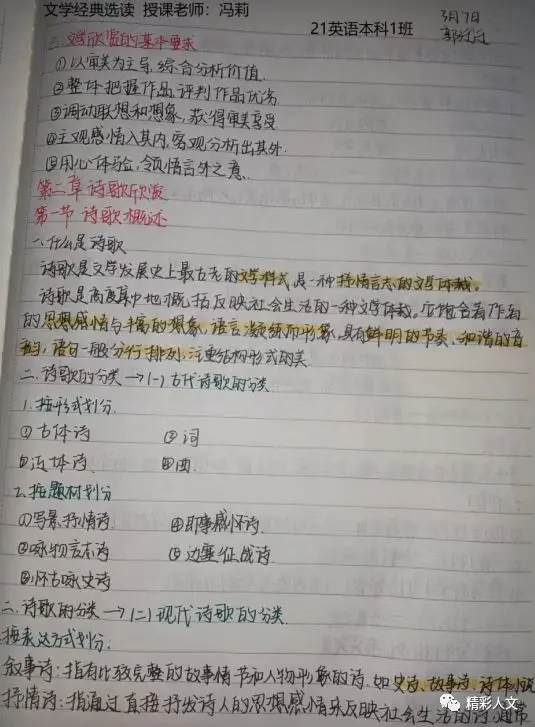 文学经典选读 授课老师：冯莉
21英语本科1班
3月7日
三、文学欣赏的基本要求
①以审美为主导，综合分析价值.
②整体把握作品，评判作品优劣
③调动联想和想象，获得审美享受
④主观感情入其内，客观分析出其外.
⑤用心体验，领悟言外之意.
第二章 诗歌欣赏
第一节 诗歌概述
一、什么是诗歌
诗歌是文学发展史上最古老的文学样式，是一种抒情言志的文学体裁。
诗歌是高度集中地概括反映社会生活的一种文学体裁。它饱含着作者
的思想感情与丰富的想象，语言凝练而形象，具有鲜明的节奏、和谐的音
韵，语句一般分行排列，注重结构形式的美
二、诗歌的分类→(一)古代诗歌的分类
1.按形式划分.
①古体诗 ③词
②近体诗 ④曲.
2.按题材划分
①写景抒情诗 ④即事感怀诗.
②咏物言志诗 ⑤边塞征战诗.
③怀古咏史诗
二、诗歌的分类→(二)现代诗歌的分类.
按表达方式划分:
叙事诗:指有比较完整的故事情节和人物形象的诗.如史诗、故事诗、诗体小说
抒情诗:指通过直接抒发诗人的思想感情来反映社会生活的诗,通常
精彩人文